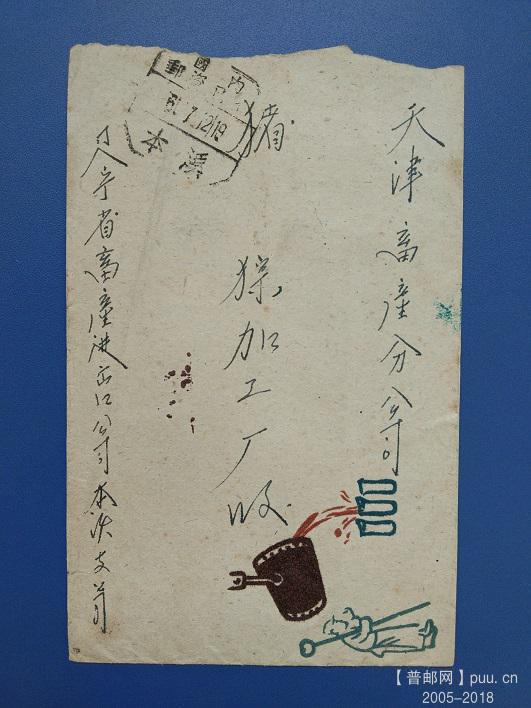 天津畜產分公司
猪鬃加工厂收
辽宁省畜產進出口公司本溪支公司
國內
郵資已付
7.12.19
本溪
【普邮网】puu.cn
2005-2018